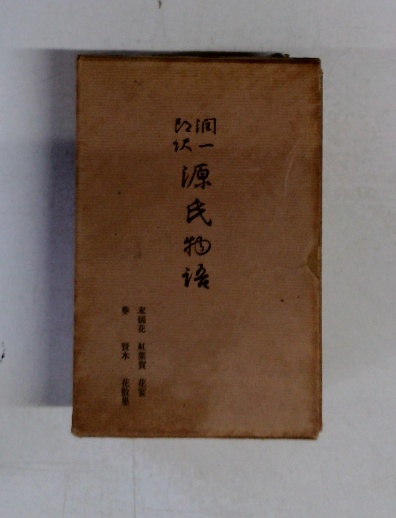 潤一
郎訳
源氏物語
末摘花　紅葉賀　花宴
葵　賢木　花散里